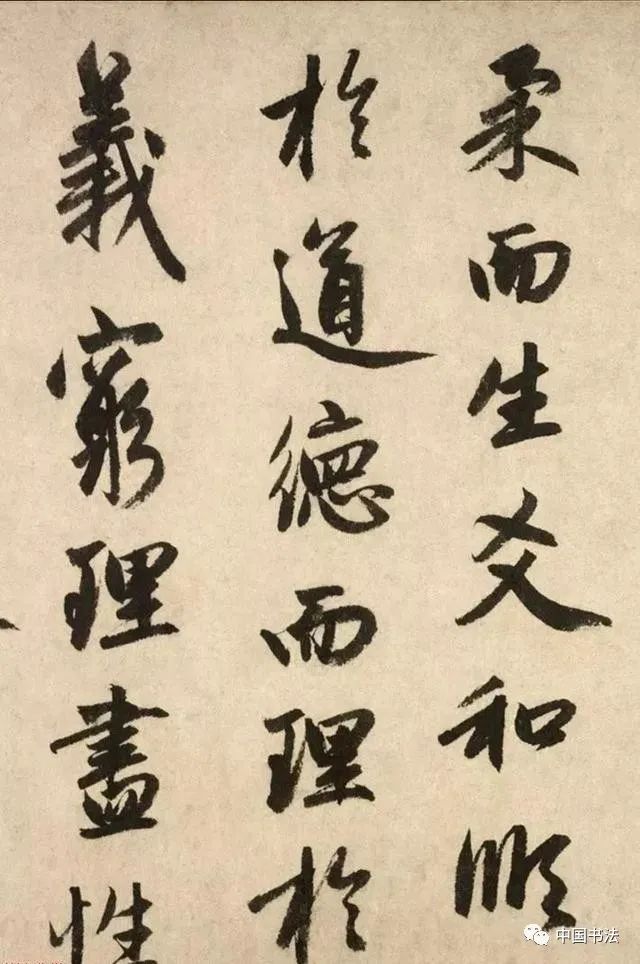 柔而生爻和順
於道德而理於
義窮理盡性
中国书法